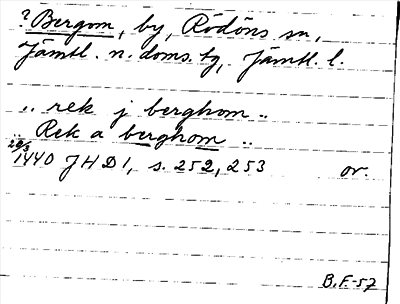 ? Bergom, by, Rödöns sn,
Jämtl. n. doms. tg, Jämtl. l.
.. rek j berghom ..
.. Rek a berghom ..
28/3 1440 JHD 1, s. 252, 253 or.
B.F.-57